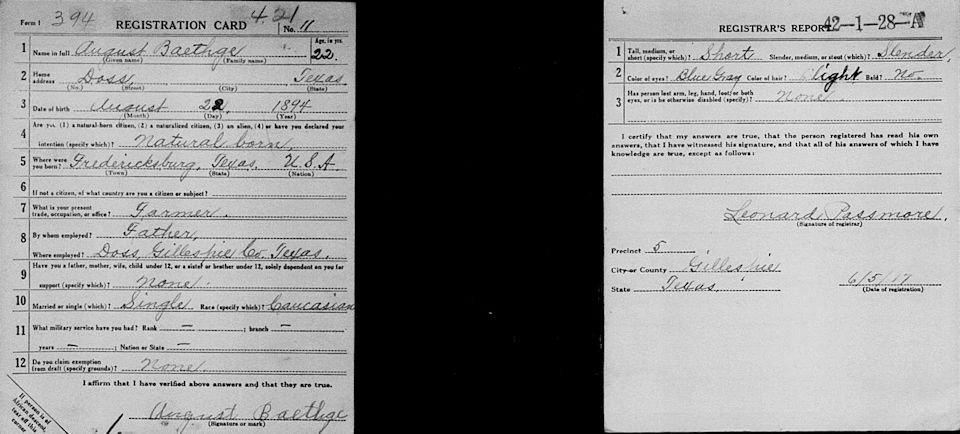 Form 1 394 REGISTRATION CARD 4-21 No. 11
1 Name in full August Baethge Age, in yrs. 22
(Given name) (Family name)
2 Home address Doss Texas
(No.) (Street) (City) (State)
3 Date of birth August 22, 1894
(Month) (Day) (Year)
4 Are you (1) a natural-born citizen, (2) a naturalized citizen, (3) an alien, (4) or have you declared your
intention (specify which)? Natural born,
5 Where were you born? Fredericksburg, Texas. U.S.A.
(Town) (State) (Nation)
6 If not a citizen, of what country are you a citizen or subject?
7 What is your present trade, occupation, or office? Farmer.
8 By whom employed? Father,
Where employed? Doss, Gillespie Co. Texas.
9 Have you a father, mother, wife, child under 12, or a sister or brother under 12, solely dependent on you for
support (specify which)? None.
10 Married or single (which)? Single Race (specify which)? Caucasian
11 What military service have you had? Rank — ; branch —
years — ; Nation or State —
12 Do you claim exemption from draft (specify grounds)? None.
I affirm that I have verified above answers and that they are true.
August Baethge
(Signature or mark)
If person is of
African descent,
tear off this
corner
REGISTRAR'S REPORT 42-1-28-A
1 Tall, medium, or short (specify which)? Short Slender, medium, or stout (which)? Slender,
2 Color of eyes? Blue Gray Color of hair? light Bald? No.
3 Has person lost arm, leg, hand, foot, or both
eyes, or is he otherwise disabled (specify)? None
I certify that my answers are true, that the person registered has read his own
answers, that I have witnessed his signature, and that all of his answers of which I
have knowledge are true, except as follows:
Leonard Passmore.
(Signature of registrar)
Precinct 5
City or County Gillespie
State Texas. 6/5/17
(Date of registration)